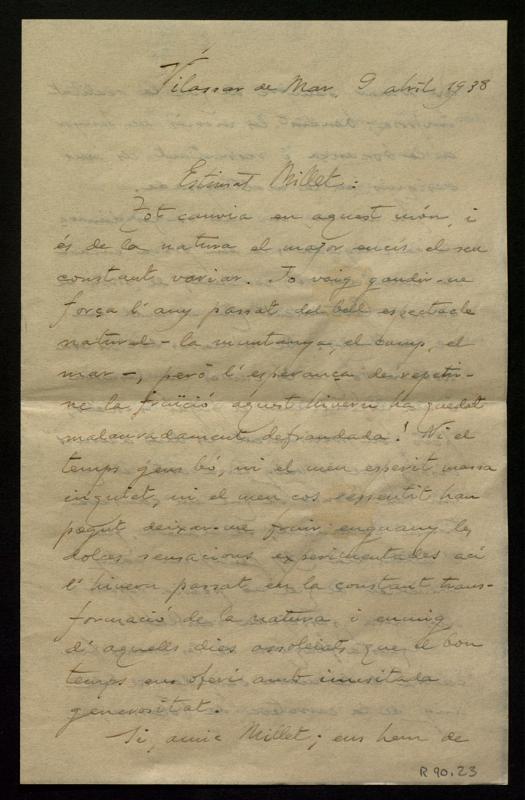 Vilassar de Mar, 9 abril 1938
Estimat Millet:
Tot canvia en aquest món, i
és de la natura el major encís el seu
constant variar. Jo vaig gaudir-ne
força l'any passat del bell espectacle
natural - la muntanya, el camp, el
mar -, però l'esperança de repetir-
ne la fruïció aquest hivern ha quedat
malauradament defraudada! Ni el
temps gens bó, ni el meu esperit massa
inquiet, ni el meu cos ressentit han
pogut deixar-me fruir enguany les
dolces sensacions experimentades ací
l'hivern passat en la constant trans-
formació de la natura i enmig
d'aquells dies assoleiats que el bon
temps ens oferí amb inusitada
generositat.
Si, amic Millet; ens hem de
R 90.23